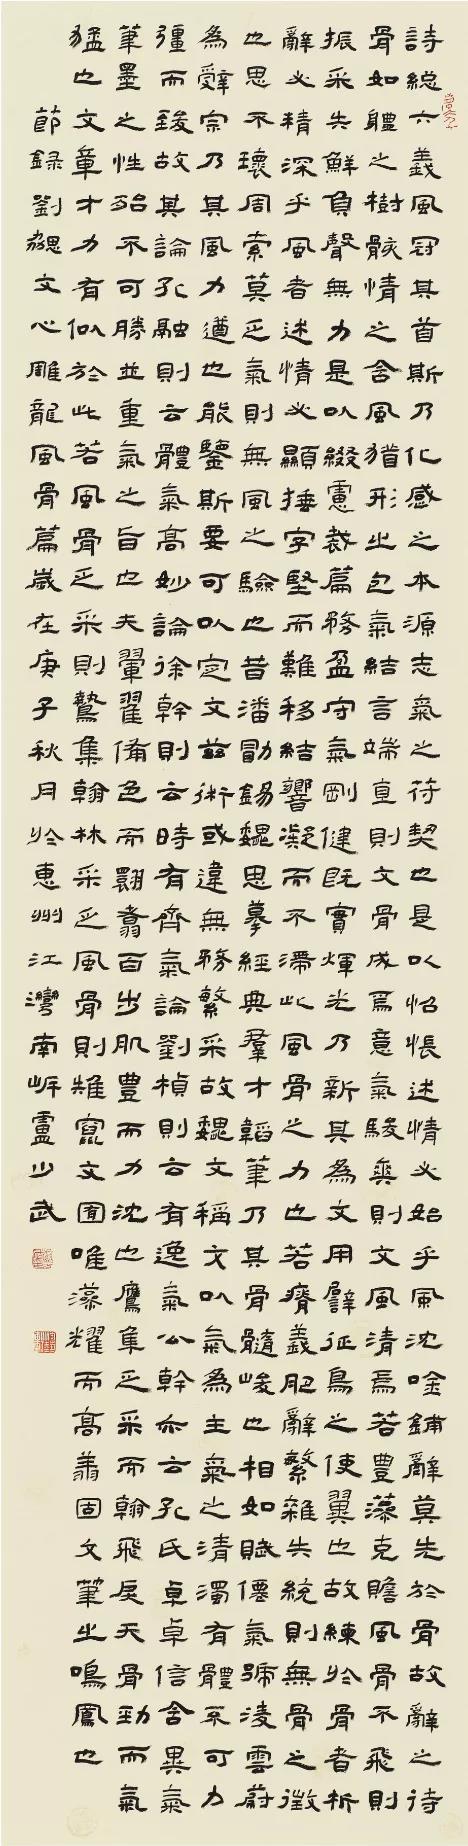 詩總六義風冠其首斯乃化感之本源志氣之符契也是以怊悵述情必始乎風沈唫鋪辭莫先於骨故辭之待
骨如體之樹骸情之含風猶形之包氣結言端直則文骨成焉意氣駿爽則文風清焉若豐藻克贍風骨不飛則
振采失鮮負聲無力是以綴慮裁篇務盈守氣剛健既實煇光乃新其為文用譬征鳥之使翼也故練於骨者析
辭必精深乎風者述情必顯捶字堅而難移結響凝而不滯此風骨之力也若瘠義肥辭繁雜失統則無骨之徵
也思不環周索莫乏氣則無風之驗也昔潘勖錫魏思摹經典羣才韜筆乃其骨髓峻也相如賦僊氣號淩雲蔚
為辭宗乃其風力遒也能鑒斯要可以定文茲術或違無務繁采故魏文稱文以氣為主氣之清濁有體不可力
彊而致故其論孔融則云體氣高妙論徐幹則云時有齊氣論劉楨則云有逸氣公幹亦云孔氏卓卓信含異氣
筆墨之性殆不可勝並重氣之旨也夫翬翟備色而翾翥百步肌豐而力沈也鷹隼乏采而翰飛戾天骨勁而氣
猛也文章才力有似於此若風骨乏采則鷙集翰林采乏風骨則雉竄文囿唯藻耀而高翔固文筆之鳴鳳也
節録劉勰文心雕龍風骨篇歲在庚子秋月於惠州江灣南岸盧少武